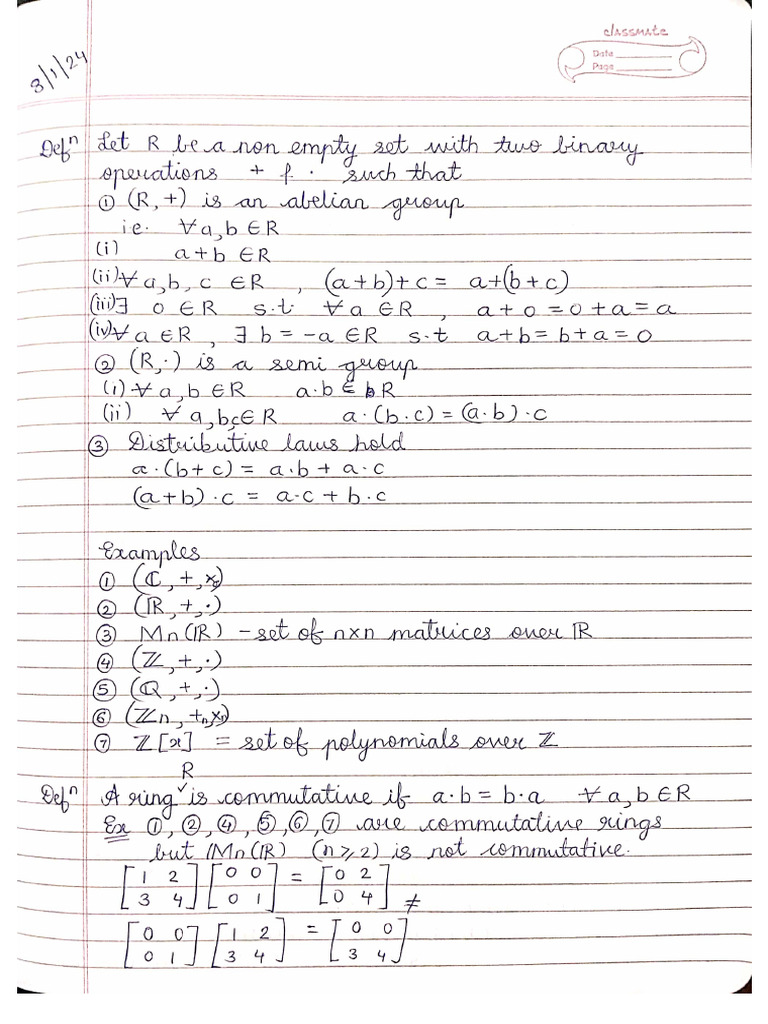 classmate
Date
Page
3/1/24
Defⁿ Let R be a non empty set with two binary
operations + & · such that
① (R,+) is an abelian group
i.e. ∀ a,b ∈ R
(i) a+b ∈ R
(ii) ∀ a,b,c ∈ R , (a+b)+c = a+(b+c)
(iii) ∃ 0 ∈ R s.t ∀ a ∈ R , a+0 = 0+a = a
(iv) ∀ a ∈ R , ∃ b = -a ∈ R s.t a+b = b+a = 0
② (R,·) is a semi group
(i) ∀ a,b ∈ R a.b ∈ R
(ii) ∀ a,b,c ∈ R a·(b·c) = (a·b)·c
③ Distributive laws hold
a·(b+c) = a·b + a·c
(a+b)·c = a·c + b·c
Examples
① (ℂ, +, ×)
② (ℝ, +, ·)
③ Mn(ℝ) - set of n×n matrices over ℝ
④ (ℤ, +, ·)
⑤ (ℚ, +, ·)
⑥ (ℤn, +n, ×n)
⑦ ℤ[x] = set of polynomials over ℤ
Defⁿ A ring R is commutative if a·b = b·a ∀ a,b ∈ R
Ex ①, ②, ④, ⑤, ⑥, ⑦ are commutative rings
but Mn(ℝ) (n ≥ 2) is not commutative.
[1 2] [0 0] = [0 2]
[3 4] [0 1] [0 4] ≠
[0 0] [1 2] = [0 0]
[0 1] [3 4] [3 4]